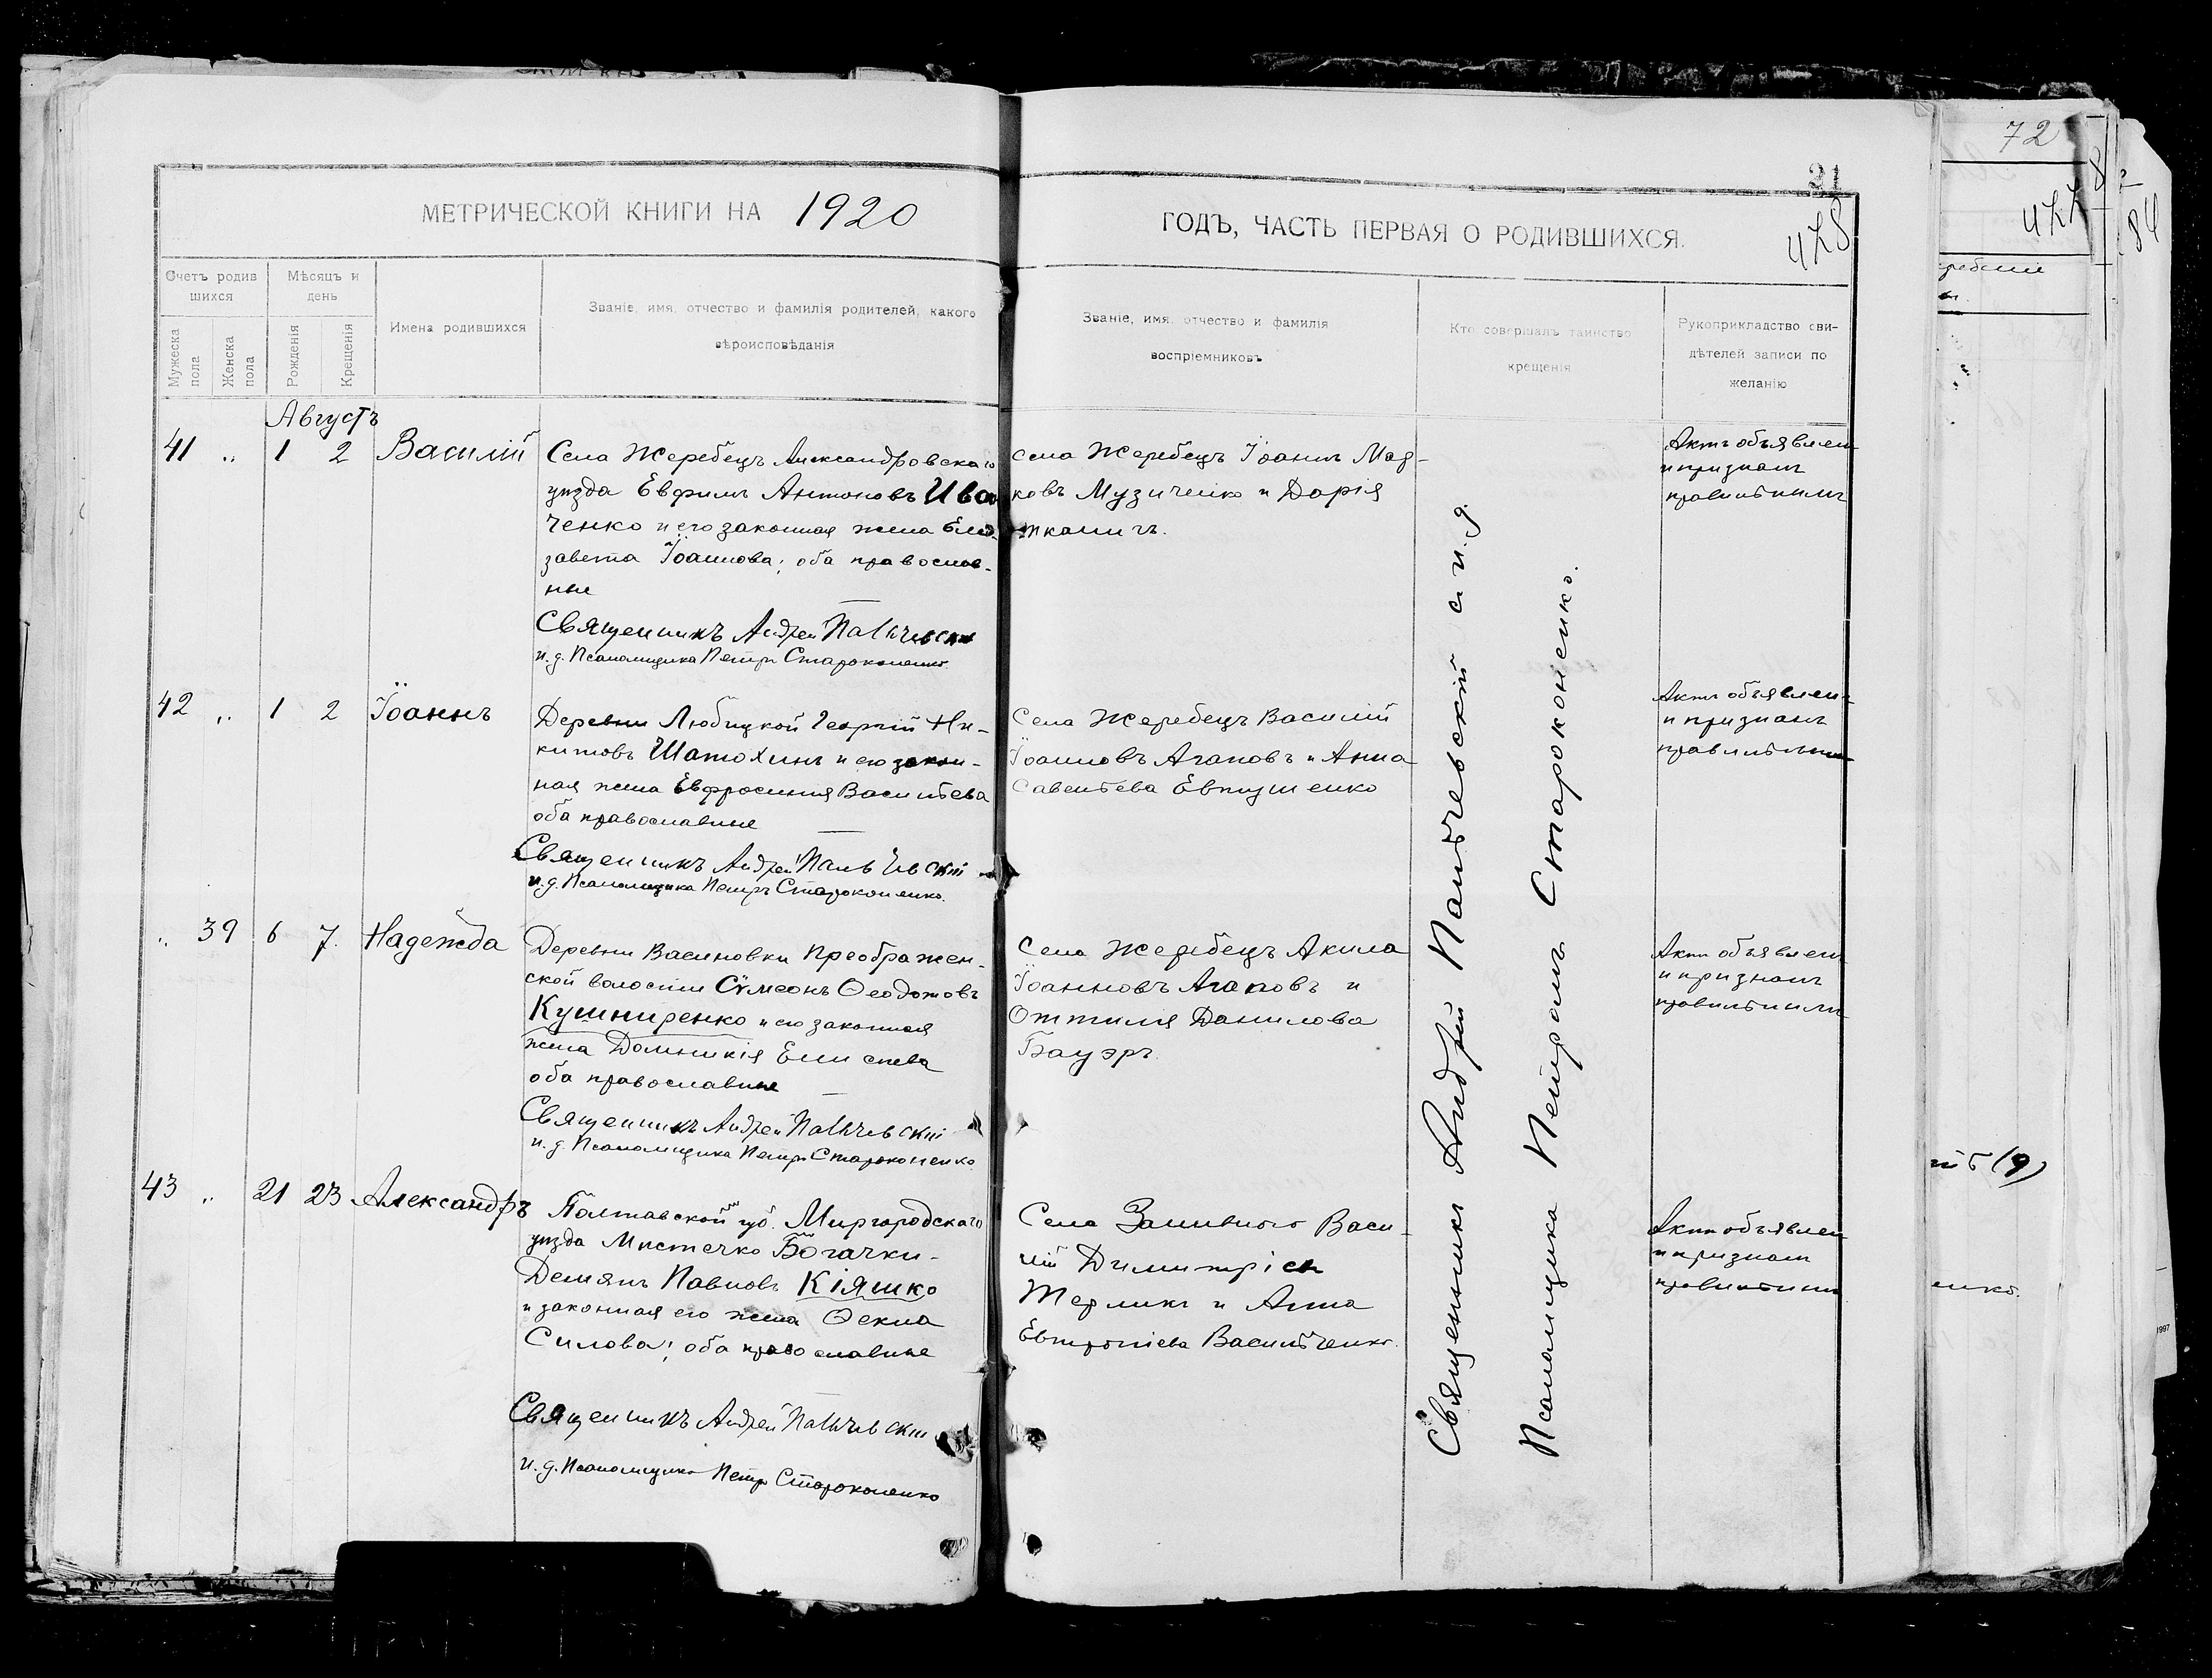 21
МЕТРИЧЕСКОЙ КНИГИ НА 1920
ГОДЪ, ЧАСТЬ ПЕРВАЯ О РОДИВШИХСЯ.
478
72
Счетъ родив
шихся
Мѣсяцъ и
день
Мужеска
пола
Женска
пола
Рожденія
Крещенія
Имена родившихся
Званіе, имя, отчество и фамилія родителей, какого
вѣроисповѣданія
Званіе, имя, отчество и фамилія
воспріемниковъ
Кто совершалъ таинство
крещенія
Рукоприкладство сви-
дѣтелей записи по
желанію
Августъ
41 " 1 2 Василій
Села Жеребецъ Александровскаго
уѣзда Евфимъ Антоновъ Ива
ченко и его законная жена Ели-
завета Іоаннова; оба православ-
ные
Священникъ Андрей
и. д. Псаломщика Петръ Староконенко
села Жеребецъ Іоаннъ
ковъ Музиченко и Дарія
Акта объявлен
и признанъ
правильнымъ
42 " 1 2 Іоаннъ
Деревни Любицкой Георгій Ни-
китовъ Шатохинъ и его закон-
ная жена Евфросинія Васильева
оба православные
Священникъ Андрей
и. д. Псаломщика Петръ Староконенко.
Села Жеребецъ Василій
Іоанновъ Агаповъ и Анна
Савельева
Актъ объявлен-
и признанъ
правильнымъ
" 39 6 7. Надежда
Деревни Васиновки Преображен-
ской волости Сѵмеонъ Ѳеодотовъ
Кушниренко и его законная
жена Домникія
оба православные
Священникъ Андрей
и. д. Псаломщика Петръ Староконенко
Села Жеребецъ Акила
Іоанновъ Агаповъ и
Оттилія Данилова
Бауэръ.
Акта объявлен
и признанъ
правильнымъ
43 " 21 23 Александръ
Полтавской губ. Миргородскаго
уѣзда Мѣстечко Богачки-
Деміянъ Павловъ Кіяшко
и законная его жена Ѳекла
Силова; оба православные
Священникъ Андрей
и. д. Псаломщика Петръ Староконенко
Села Заливного Васи-
лій Димитріев
Терликъ и Анна
Евтропіева Васильченко.
Акта объявлен
и признанъ
правильнымъ
Священникъ Андрей Пальчевскій с и. д.
Псаломщика Петромъ Староконенко.